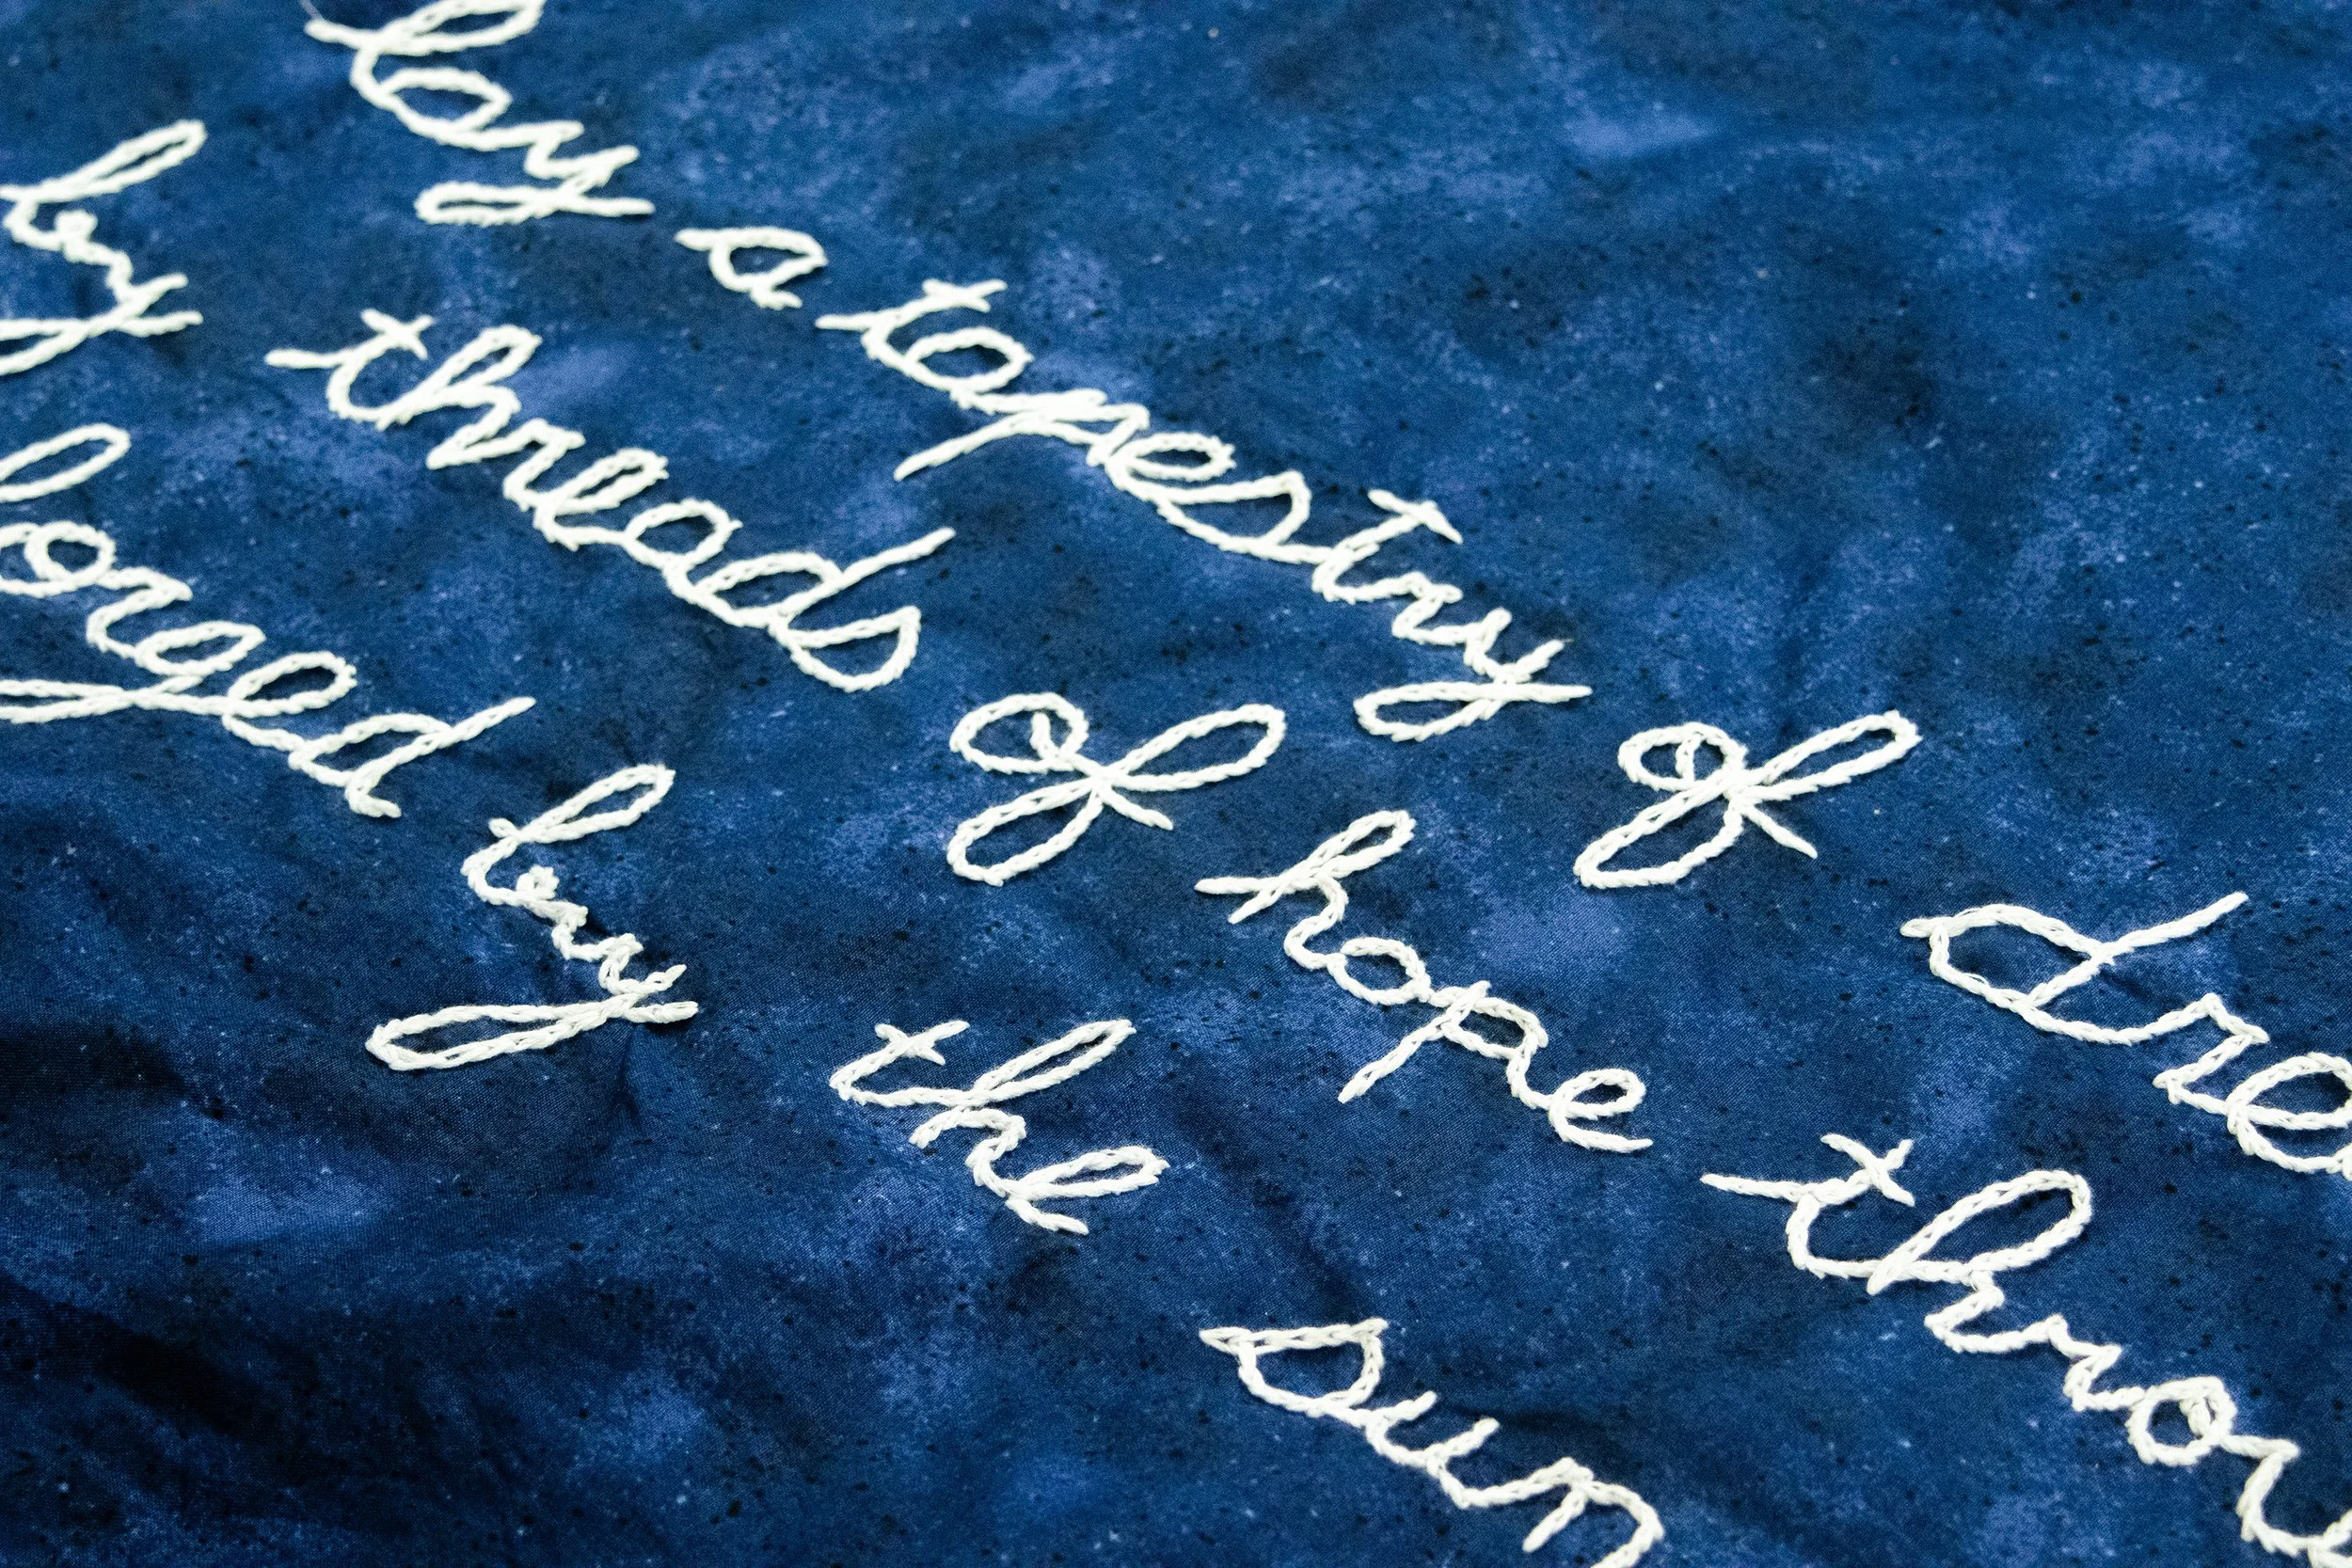 lay a tapestry of dre
by threads of hope throu
forged by the sun